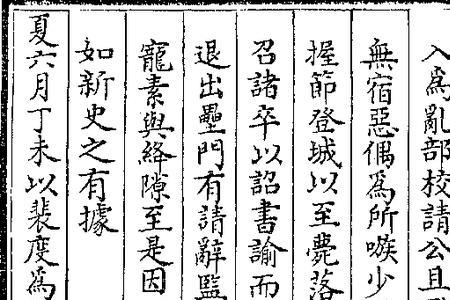 入為亂部校請公且
無宿惡偶為所嗾少
握節登城以至薨落
召諸卒以詔書諭而
退出壘門有請辭監
寵素與絡隙至是因
如新史之有據
夏六月丁未以裴度為